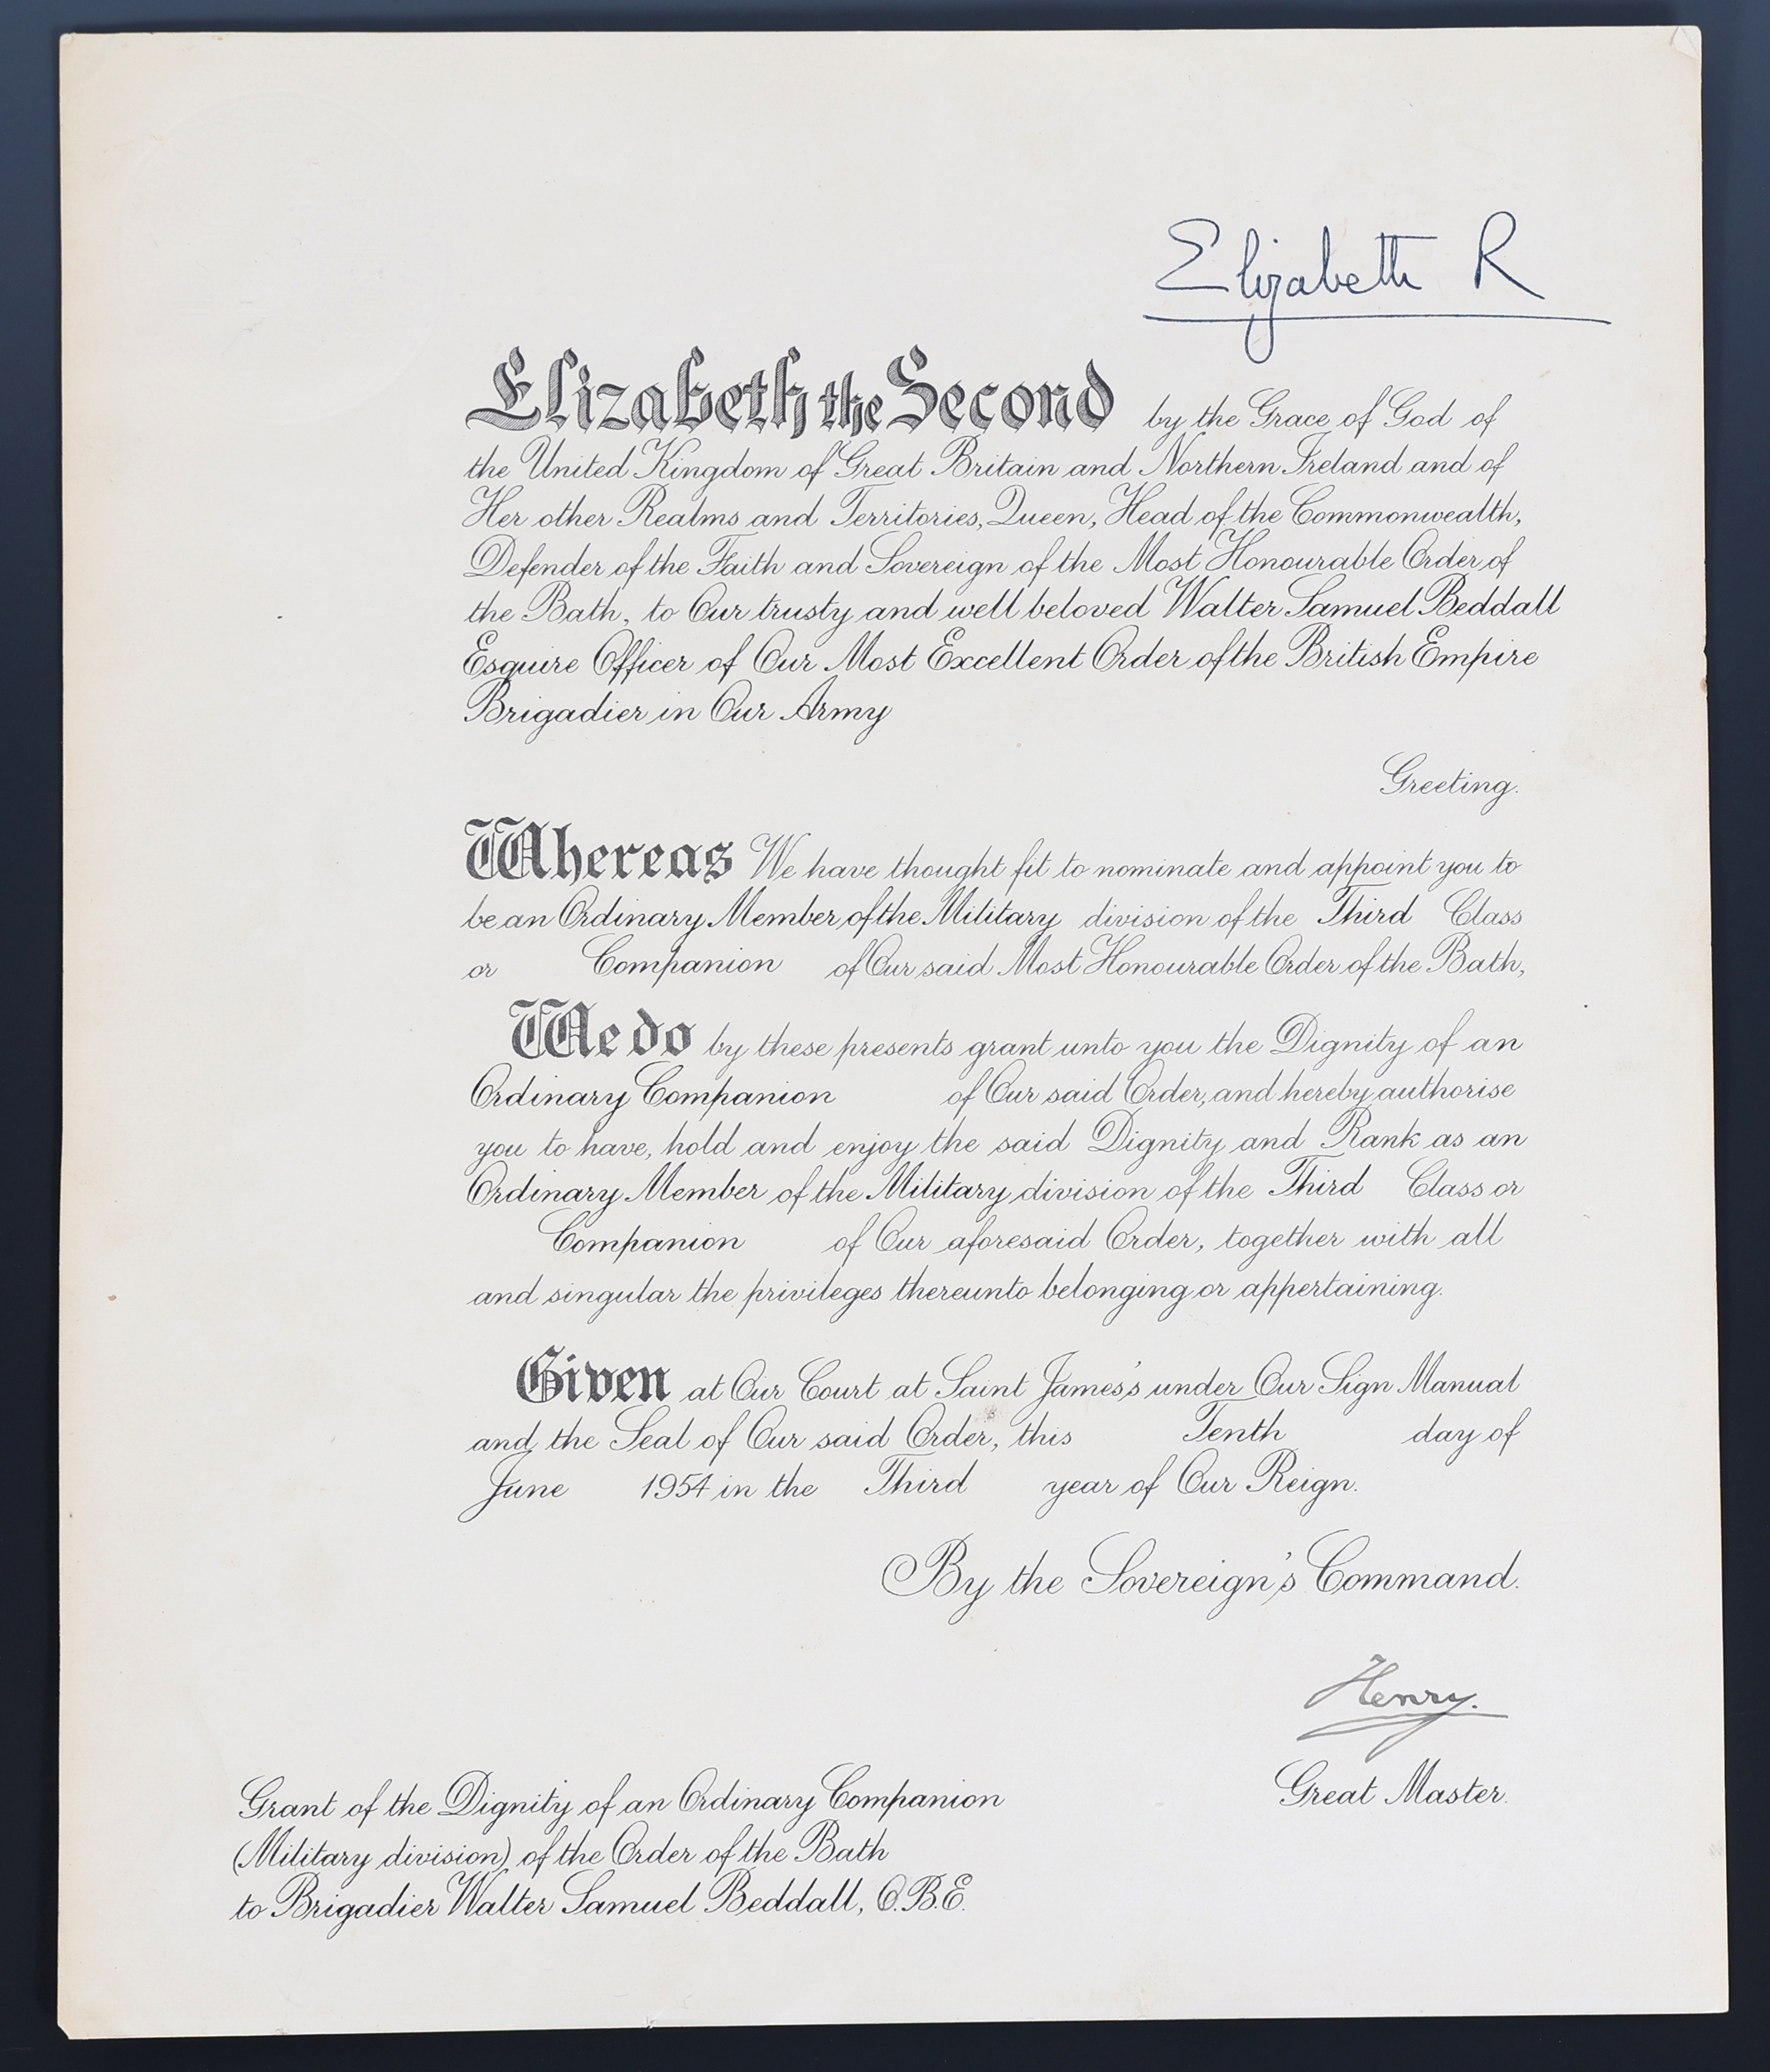 Elizabeth R
Elizabeth the Second by the Grace of God of
the United Kingdom of Great Britain and Northern Ireland and of
Her other Realms and Territories, Queen, Head of the Commonwealth,
Defender of the Faith and Sovereign of the Most Honourable Order of
the Bath, to Our trusty and well beloved Walter Samuel Beddall
Esquire Officer of Our Most Excellent Order of the British Empire
Brigadier in Our Army
Greeting.
Whereas We have thought fit to nominate and appoint you to
be an Ordinary Member of the Military division of the Third Class
or Companion of Our said Most Honourable Order of the Bath,
We do by these presents grant unto you the Dignity of an
Ordinary Companion of Our said Order, and hereby authorise
you to have, hold and enjoy the said Dignity and Rank as an
Ordinary Member of the Military division of the Third Class or
Companion of Our aforesaid Order, together with all
and singular the privileges thereunto belonging or appertaining.
Given at Our Court at Saint James's under Our Sign Manual
and the Seal of Our said Order, this Tenth day of
June 1954 in the Third year of Our Reign.
By the Sovereign's Command.
Henry.
Great Master.
Grant of the Dignity of an Ordinary Companion
(Military division) of the Order of the Bath
to Brigadier Walter Samuel Beddall, O.B.E.